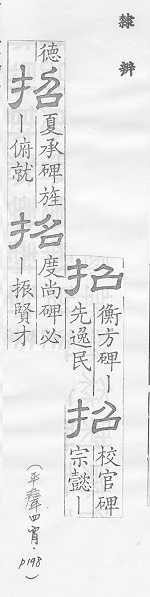 隸辨
招
衡方碑｜
先逸民
招
校官碑
宗懿｜
德
招
夏承碑旌
｜俯就
招
度尚碑必
｜振賢才
(平聲四宵．p198)